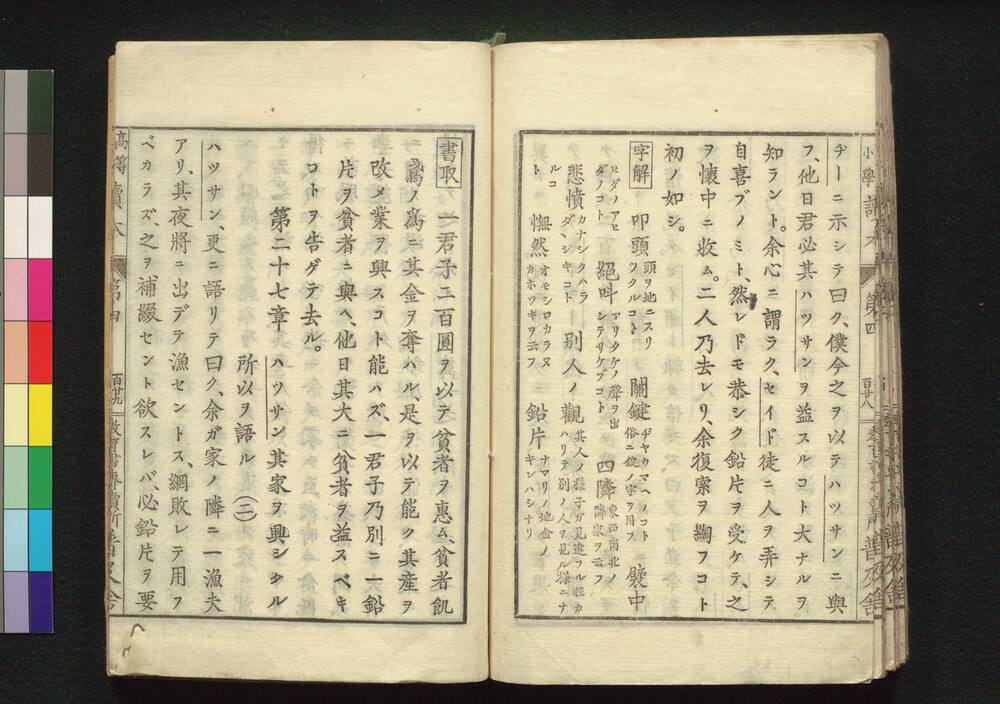 小學讀本
第四
百廿八
普及舍
ヂーニ示シテ曰ク、僕今之ヲ以テハツサンニ與
フ、他日君必其ハツサンヲ益スルコト大ナルヲ
知ラント。余心ニ謂ラク、セイド徒ニ人ヲ弄シテ
自喜ブノミト、然レドモ恭シク鉛片ヲ受ケテ、之
ヲ懷中ニ收ム。二人乃去レリ、余復索ヲ綯フコト
初ノ如シ。
字解 叩頭 頭ヲ地ニスリツクルコト 關鍵 ヂヤウマヘノコト俗ニ錠ノ字ヲ用フ 甓中
ヒダノアヒダノコト 絕叫 アリタケノ聲ヲ出シテサケブコト 四隣 東西南北ノ隣家ヲ云フ
悲憤 カナシクハラダヽシキコト 別人ノ觀 其人ノ樣子ガ見違フル程カハリテ別ノ人ヲ見ル樣ニナ
ルコト 憮然 オモシロカラヌカホツキヲ云フ 鉛片 ナマリノ地金ノキレハシナリ
書取 一君子二百圓ヲ以テ貧者ヲ惠ム、貧者飢
鳶ノ爲ニ其金ヲ奪ハル、是ヲ以テ能ク其產ヲ
改メ業ヲ興スコト能ハズ、一君子乃別ニ一鉛
片ヲ貧者ニ與ヘ、他日其大ニ貧者ヲ益スベキ
コトヲ告ゲテ去ル。
第二十七章 ハツサン其家ヲ興シタル
所以ヲ語ル(二)
ハツサン、更ニ語リテ曰ク、余ガ家ノ隣ニ一漁夫
アリ、其夜將ニ出デテ漁セントス、網敗レテ用フ
ベカラズ、之ヲ補綴セント欲スレバ、必鉛片ヲ要
高等讀本
第四
百廿九
教育書專賣所普及舍